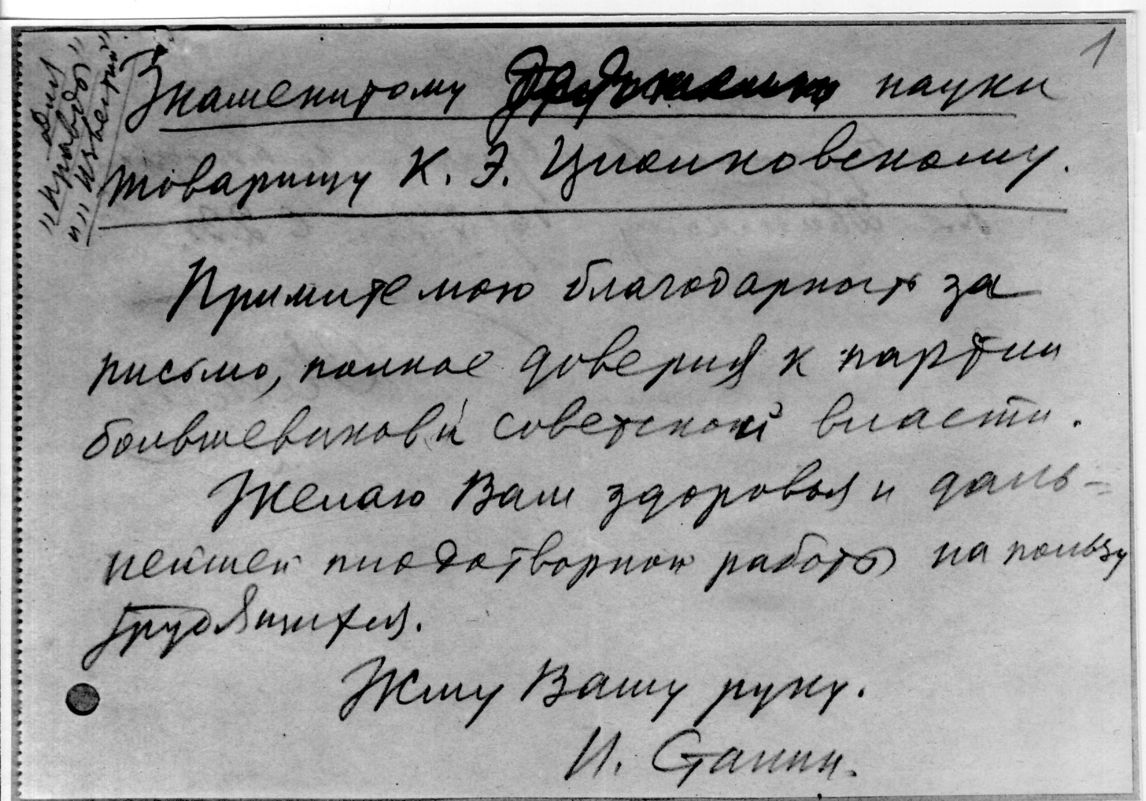 для
"Правды"
и "Известий"
1
Знаменитому науки
товарищу К. Э. Циолковскому.
Примите мою благодарность за
письмо, полное доверия к партии
большевиков и советской власти.
Желаю Вам здоровья и даль-
нейшей плодотворной работы на пользу
трудящихся.
Жму Вашу руку.
И. Сталин.